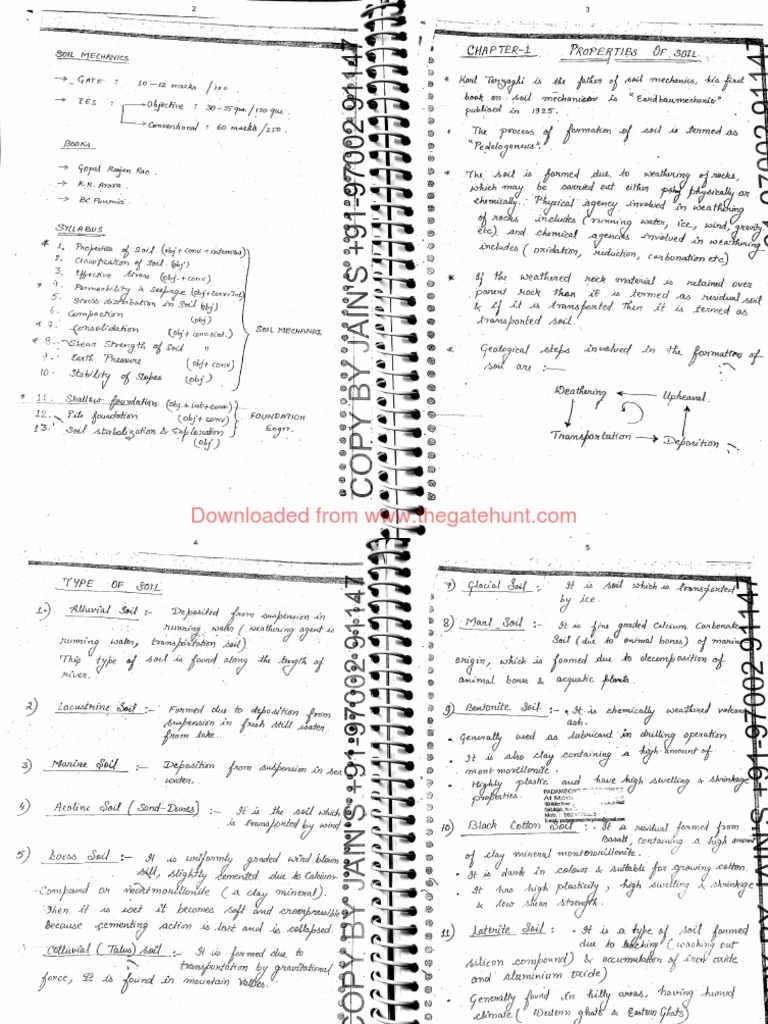 2
SOIL MECHANICS
→ GATE : 10-12 marks /100
→ IES : → Objective : 30-35 que /120 que.
→ Conventional : 60 marks/250.
BOOKS
→ Gopal Ranjan Rao.
→ K.R. Arora
→ BC Punmia.
SYLLABUS
* 1. Properties of Soil (obj + conv + interview)
2. Classification of Soil (obj)
3. Effective Stress (obj. + conv)
* 4. Permeability & Seepage (obj + conv + Int)
5. Stress distribution in Soil (obj)
6. Compaction (obj)
* 7. Consolidation (obj + conv + int.)
* 8. Shear Strength of Soil "
9. Earth Pressure (obj + conv)
10. Stability of Slopes (obj)
SOIL MECHANICS
* 11. Shallow foundation (obj + int + conv)
12. Pile foundation (obj + conv)
13. Soil stabalization & Exploration (obj)
FOUNDATION
Engrr.
COPY BY JAIN'S +91-97002 91147
3
CHAPTER-1 PROPERTIES OF SOIL
* Karl Terzaghi is the father of soil mechanics, his first
book on soil mechanics is "Eardbaumechanic"
publised in 1925.
• The process of formation of soil is termed as
"Pedologenesis".
* The soil is formed due to weathering of rocks,
which may be carried out either physically or
chemically. Physical agency involved in weathering
of rocks includes (running water, ice, wind, gravity
etc) and chemical agencies involved in weathering
includes (oxidation, reduction, carbonation etc)
* If the weathered rock material is retained over
parent rock then it is termed as residual soil
& if it is transported then it is termed as
transported soil.
* Geological steps involved in the formation of
soil are :—
Weathering ← Upheaval.
Transportation → Deposition
97002 91147
Downloaded from www.thegatehunt.com
4
TYPE OF SOIL
1.) Alluvial Soil :- Deposited from suspension in
running water (weathering agent is
running water, transportation soil)
This type of soil is found along the length of
river.
2) Lacustrine Soil :- Formed due to deposition from
suspension in fresh still water
from lake.
3) Marine Soil :- Deposition from suspension in sea
water.
4) Aeoline Soil (Sand-Dunes) :- It is the soil which
is transported by wind
5) Loess Soil :- It is uniformly graded wind blown
silt, slightly cemented due to Calcium
Compound or montmorillonite (a clay mineral).
When it is wet it becomes soft and compressible
because cementing action is lost and is collapsed.
Colluvial (Talus) soil :- It is formed due to
transportation by gravitational
force, It is found in mountain Valles.
COPY BY JAIN'S +91-97002 91147
5
7) Glacial Soil :- It is soil which is transported
by ice.
8) Marl Soil :- It is fine graded Calcium Carbonate
Soil (due to animal bones) of marine
origin, which is formed due to decomposition of
animal bones & acquatic plants.
9) Bentonite Soil :- • It is chemically weathered volcanic
ash.
• Generally used as lubricant in drilling operation
• It is also clay containing a high amount of
montmorellonite.
• Highly plastic and have high swelling & shrinkage
properties.
10) Black Cotton Soil :- • It is residual formed from
Basalt, containing a high amount
of clay mineral montmorillonite.
• It is dark in colour & suitable for growing cotton.
• It has high plasticity, high swelling & shrinkage
& low shear strength.
11) Laterite Soil :- • It is a type of soil formed
due to leaching (washing out
silicon compound) & accumulation of iron oxide
and aluminium oxide)
• Generally found in hilly areas, having humid
climate (Western ghats & Eastern Ghats)
BY JAIN'S +91-97002 91147